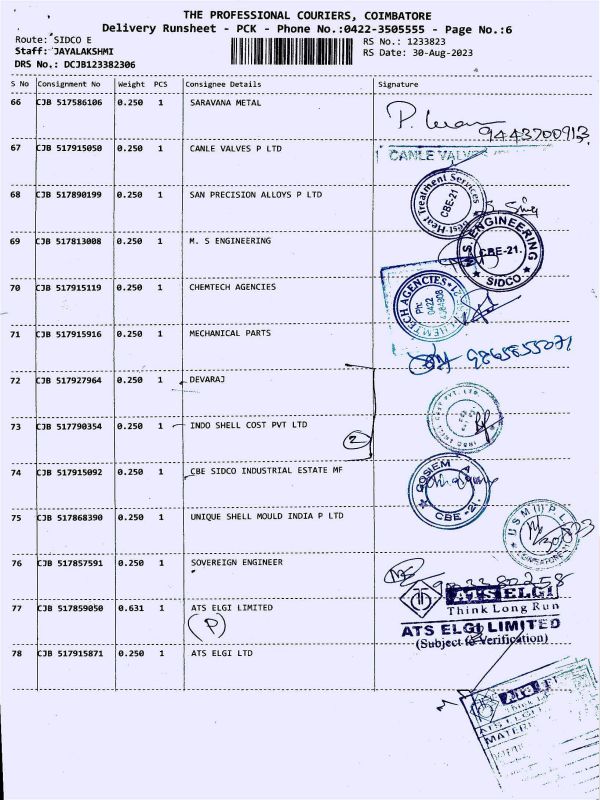 THE PROFESSIONAL COURIERS, COIMBATORE
Delivery Runsheet - PCK - Phone No.:0422-3505555 - Page No.:6
Route: SIDCO E
RS No.: 1233823
Staff: JAYALAKSHMI
RS Date: 30-Aug-2023
DRS No.: DCJB123382306
S No Consignment No Weight PCS Consignee Details Signature
66 CJB 517586106 0.250 1 SARAVANA METAL
9443700913
67 CJB 517915050 0.250 1 CANLE VALVES P LTD
CANLE VALVES
68 CJB 517890199 0.250 1 SAN PRECISION ALLOYS P LTD
Best Heat Treatment Services
CBE-21
69 CJB 517813008 0.250 1 M. S ENGINEERING
M.S. ENGINEERING
CBE-21.
SIDCO
70 CJB 517915119 0.250 1 CHEMTECH AGENCIES
CHEMTECH AGENCIES
0422
71 CJB 517915916 0.250 1 MECHANICAL PARTS
9865855071
72 CJB 517927964 0.250 1 DEVARAJ
73 CJB 517790354 0.250 1 INDO SHELL COST PVT LTD
2
74 CJB 517915092 0.250 1 CBE SIDCO INDUSTRIAL ESTATE MF
COSIEMA
CBE -21.
75 CJB 517868390 0.250 1 UNIQUE SHELL MOULD INDIA P LTD
USM (I) P L
76 CJB 517857591 0.250 1 SOVEREIGN ENGINEER
77 CJB 517859050 0.631 1 ATS ELGI LIMITED
(P)
ATS ELGI
Think Long Run
ATS ELGI LIMITED
(Subject to Verification)
78 CJB 517915871 0.250 1 ATS ELGI LTD
ATS ELGI